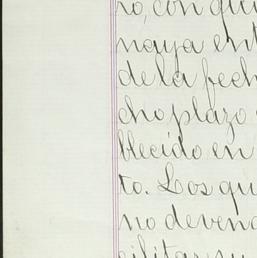 no, con qui
naya ent
de la fech
cho plazo
blecido en
to. Los qu
no deven